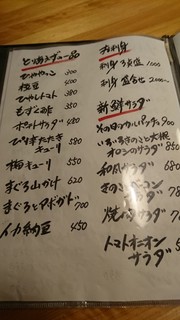 とりあえずの一品
ひややっこ 300
枝豆 400
ひやしトマト 380
もずく酢 380
ポテトサラダ 480
ぴり辛たたき
キューリ 580
梅キューリ 550
まぐろ山かけ 620
まぐろとアボカド 700
イカ納豆 450
お刺身
刺身3点盛 1000
刺身盛合せ 2000〜
新鮮サラダ
700
いろいろきのこと大根
オロシのサラダ 850
和風サラダ 680
きのことベーコン
サラダ
焼肉サラダ
トマトオニオン
サラダ